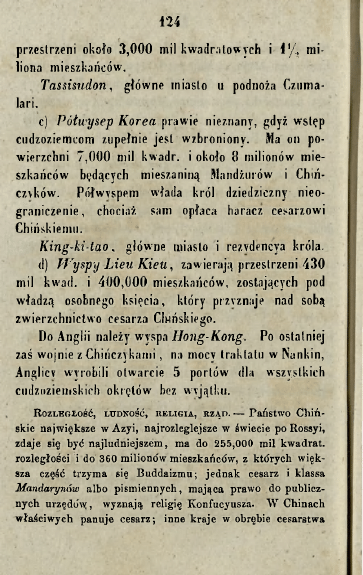 124
przestrzeni około 3,000 mil kwadratowych i 1¼ mi-
liona mieszkańców.
Tassisudon, główne miasto u podnoża Czuma-
lari.
c) Półwysep Korea prawie nieznany, gdyż wstęp
cudzoziemcom zupełnie jest wzbroniony. Ma on po-
wierzchni 7,000 mil kwadr. i około 8 milionów mie-
szkańców będących mieszaniną Mandżurów i Chiń-
czyków. Półwyspem włada król dziedziczny nieo-
graniczenie, chociaż sam opłaca haracz cesarzowi
Chińskiemu.
King-ki-tao, główne miasto i rezydencya króla.
d) Wyspy Lieu Kieu, zawierają przestrzeni 430
mil kwad. i 400,000 mieszkańców, zostających pod
władzą osobnego księcia, który przyznaje nad sobą
zwierzchnictwo cesarza Chińskiego.
Do Anglii należy wyspa Hong-Kong. Po ostatniej
zaś wojnie z Chińczykami, na mocy traktatu w Nankin,
Anglicy wyrobili otwarcie 5 portów dla wszystkich
cudzoziemskich okrętów bez wyjątku.
Rozległość, ludność, religia, rząd. — Państwo Chiń-
skie największe w Azyi, najrozleglejsze w świecie po Rossyi,
zdaje się być najludniejszem, ma do 255,000 mil kwadrat.
rozległości i do 360 milionów mieszkańców, z których więk-
sza część trzyma się Buddaizmu; jednak cesarz i klassa
Mandarynów albo pismiennych, mająca prawo do publicz-
nych urzędów, wyznają religię Konfucyusza. W Chinach
właściwych panuje cesarz; inne kraje w obrębie cesarstwa